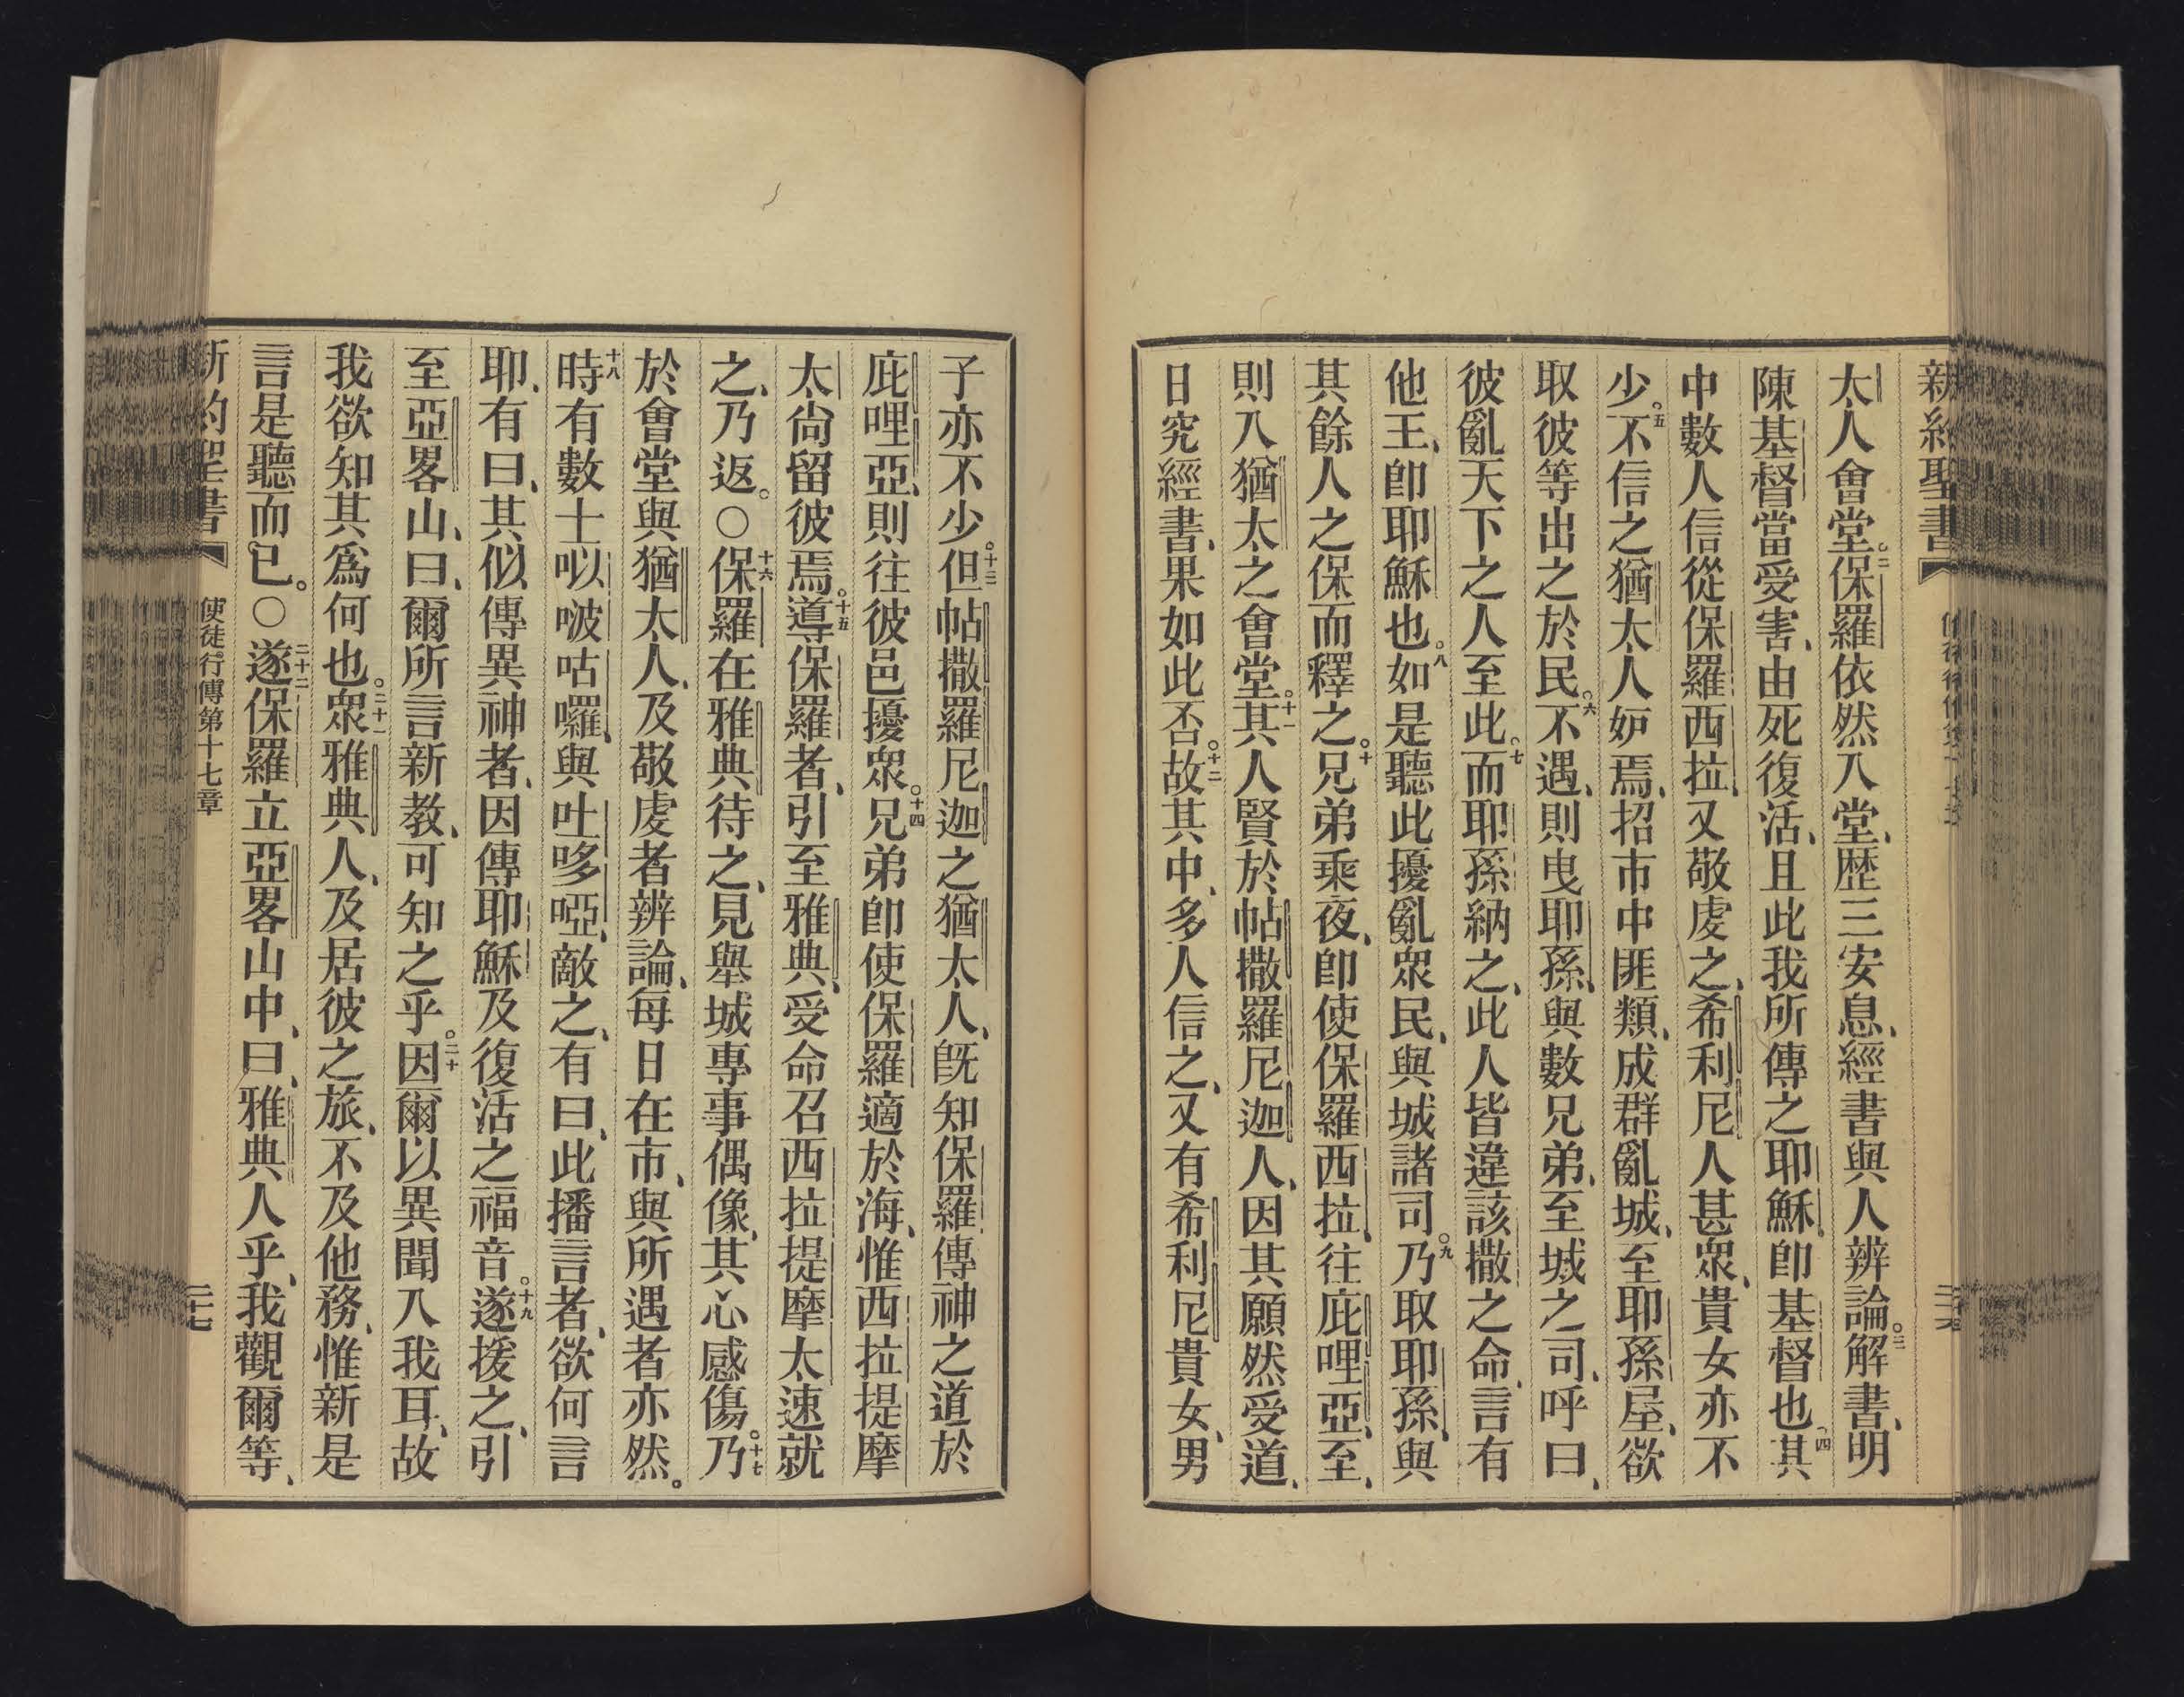 新約聖書
太人會堂。二保羅依然入堂、歷三安息、經書與人辨論。三解書、明
陳基督當受害、由死復活、且此我所傳之耶穌、卽基督也。四其
中數人信從保羅西拉、又敬虔之、希利尼人甚眾、貴女亦不
少。五不信之猶太人妒焉、招市中匪類、成群亂城、至耶孫屋、欲
取彼等出之於民。六不遇、則曳耶孫、與數兄弟、至城之司、呼曰、
彼亂天下之人至此。七而耶孫納之、此人皆違該撒之命、言有
他王、卽耶穌也。八如是聽此擾亂眾民、與城諸司。九乃取耶孫、與
其餘人之保而釋之。十兄弟乘夜、卽使保羅西拉、往庇哩亞、至、
則入猶太之會堂。十一其人賢於帖撒羅尼迦人、因其願然受道、
日究經書、果如此否。十二故其中、多人信之、又有希利尼貴女、男
子亦不少。十三但帖撒羅尼迦之猶太人、旣知保羅傳神之道於
庇哩亞、則往彼邑擾眾。十四兄弟卽使保羅適於海、惟西拉提摩
太尙留彼焉。十五導保羅者、引至雅典、受命召西拉提摩太速就
之、乃返。〇十六保羅在雅典待之、見舉城專事偶像、其心感傷。十七乃
於會堂與猶太人、及敬虔者辨論、每日在市、與所遇者亦然。
十八時有數士、呶啵咕囉、與吐哆啞、敵之、有曰、此播言者、欲何言
耶、有曰、其似傳異神者、因傳耶穌及復活之福音。十九遂援之、引
至亞畧山、曰、爾所言新教、可知之乎。二十因爾以異聞入我耳、故
我欲知其爲何也。二十一眾雅典人、及居彼之旅、不及他務、惟新是
言是聽而已。〇二十二遂保羅立亞畧山中、曰、雅典人乎、我觀爾等、
新約聖書
使徒行傳第十七章
二十七